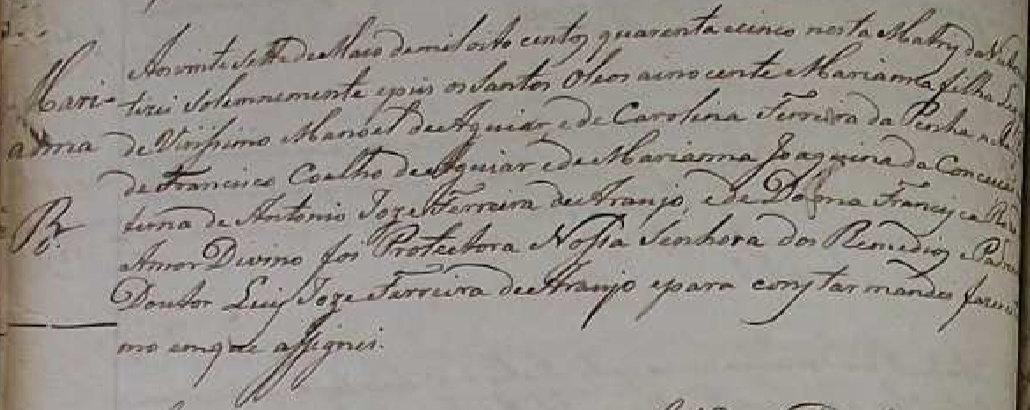 Aos vinte sette de Maio de mil oito centos quarenta e cinco nesta Matriz da
Mari-
tizei Solemnemente e puis os Santos Oleos a innocente Marianna filha
anna
de Virissimo Manoel de Aguiar, e de Carolina Ferreira da Penha
de Francisco Coelho de Aguiar e de Marianna Joaquina da
terna de Antonio Joze Ferreira de Araujo, e de Dona Francisca
Amor Divino foi Protectora Nossa Senhora dos Remedios e
Doutor Luiz Joze Ferreira de Araujo e para constar mandei
mo em que assignei.